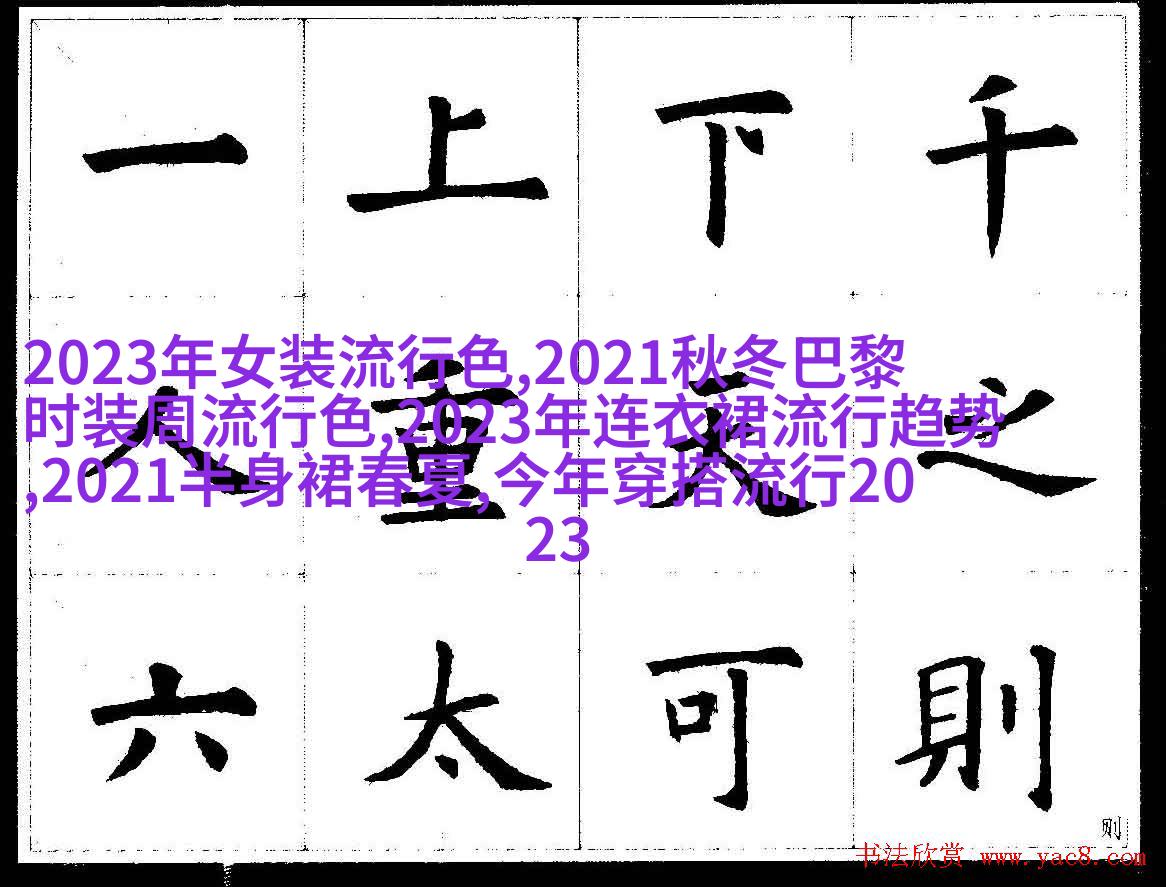 一 上 下 千
2023年女装流行色,2021秋冬巴黎
时装周流行色,2023年连衣裙流行趋势
,2021半身裙春夏,今年穿搭流行20
23
人 重 天 之
六 太 可 則
则
书法欣赏 www.yac8.com